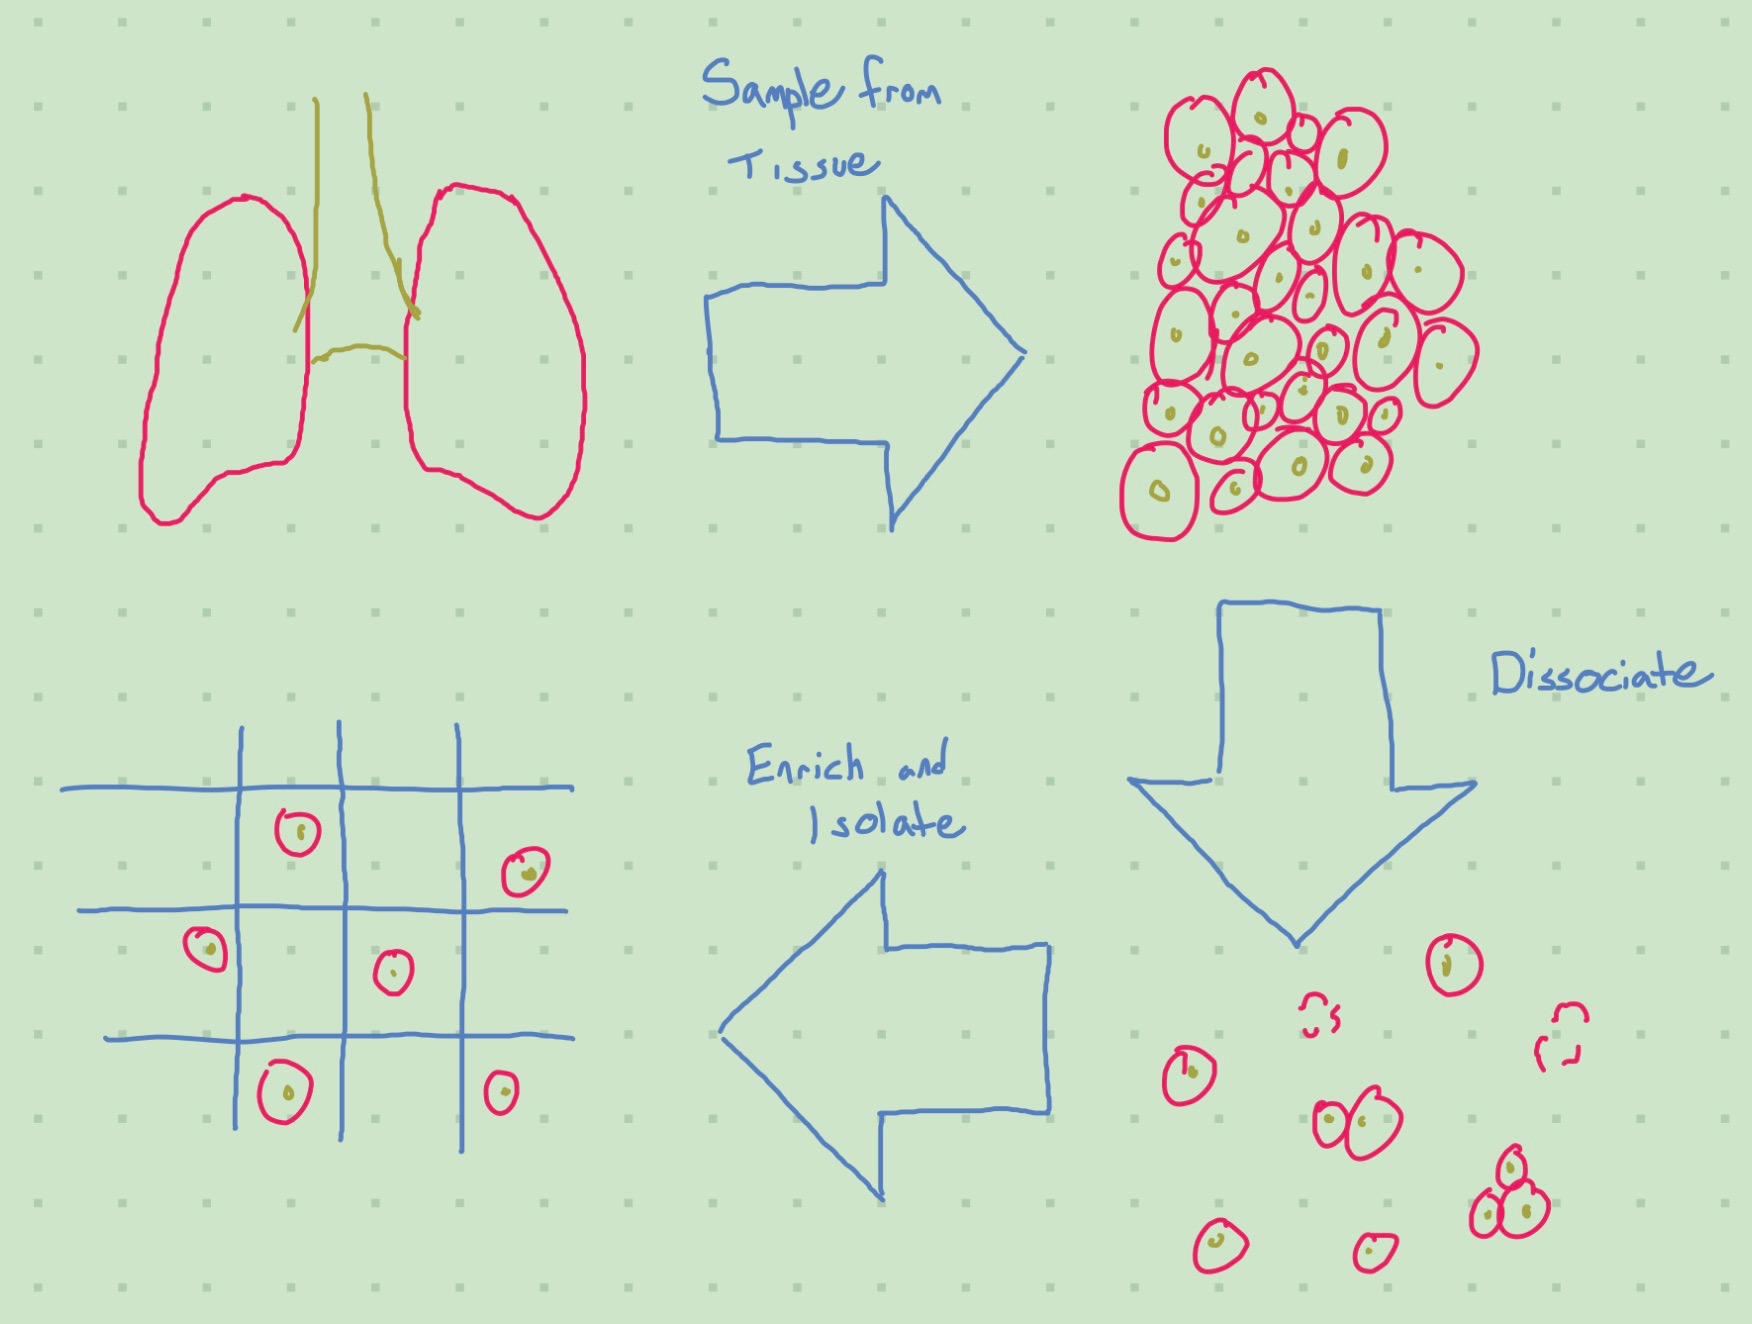 Sample from
Tissue
Dissociate
Enrich and
Isolate